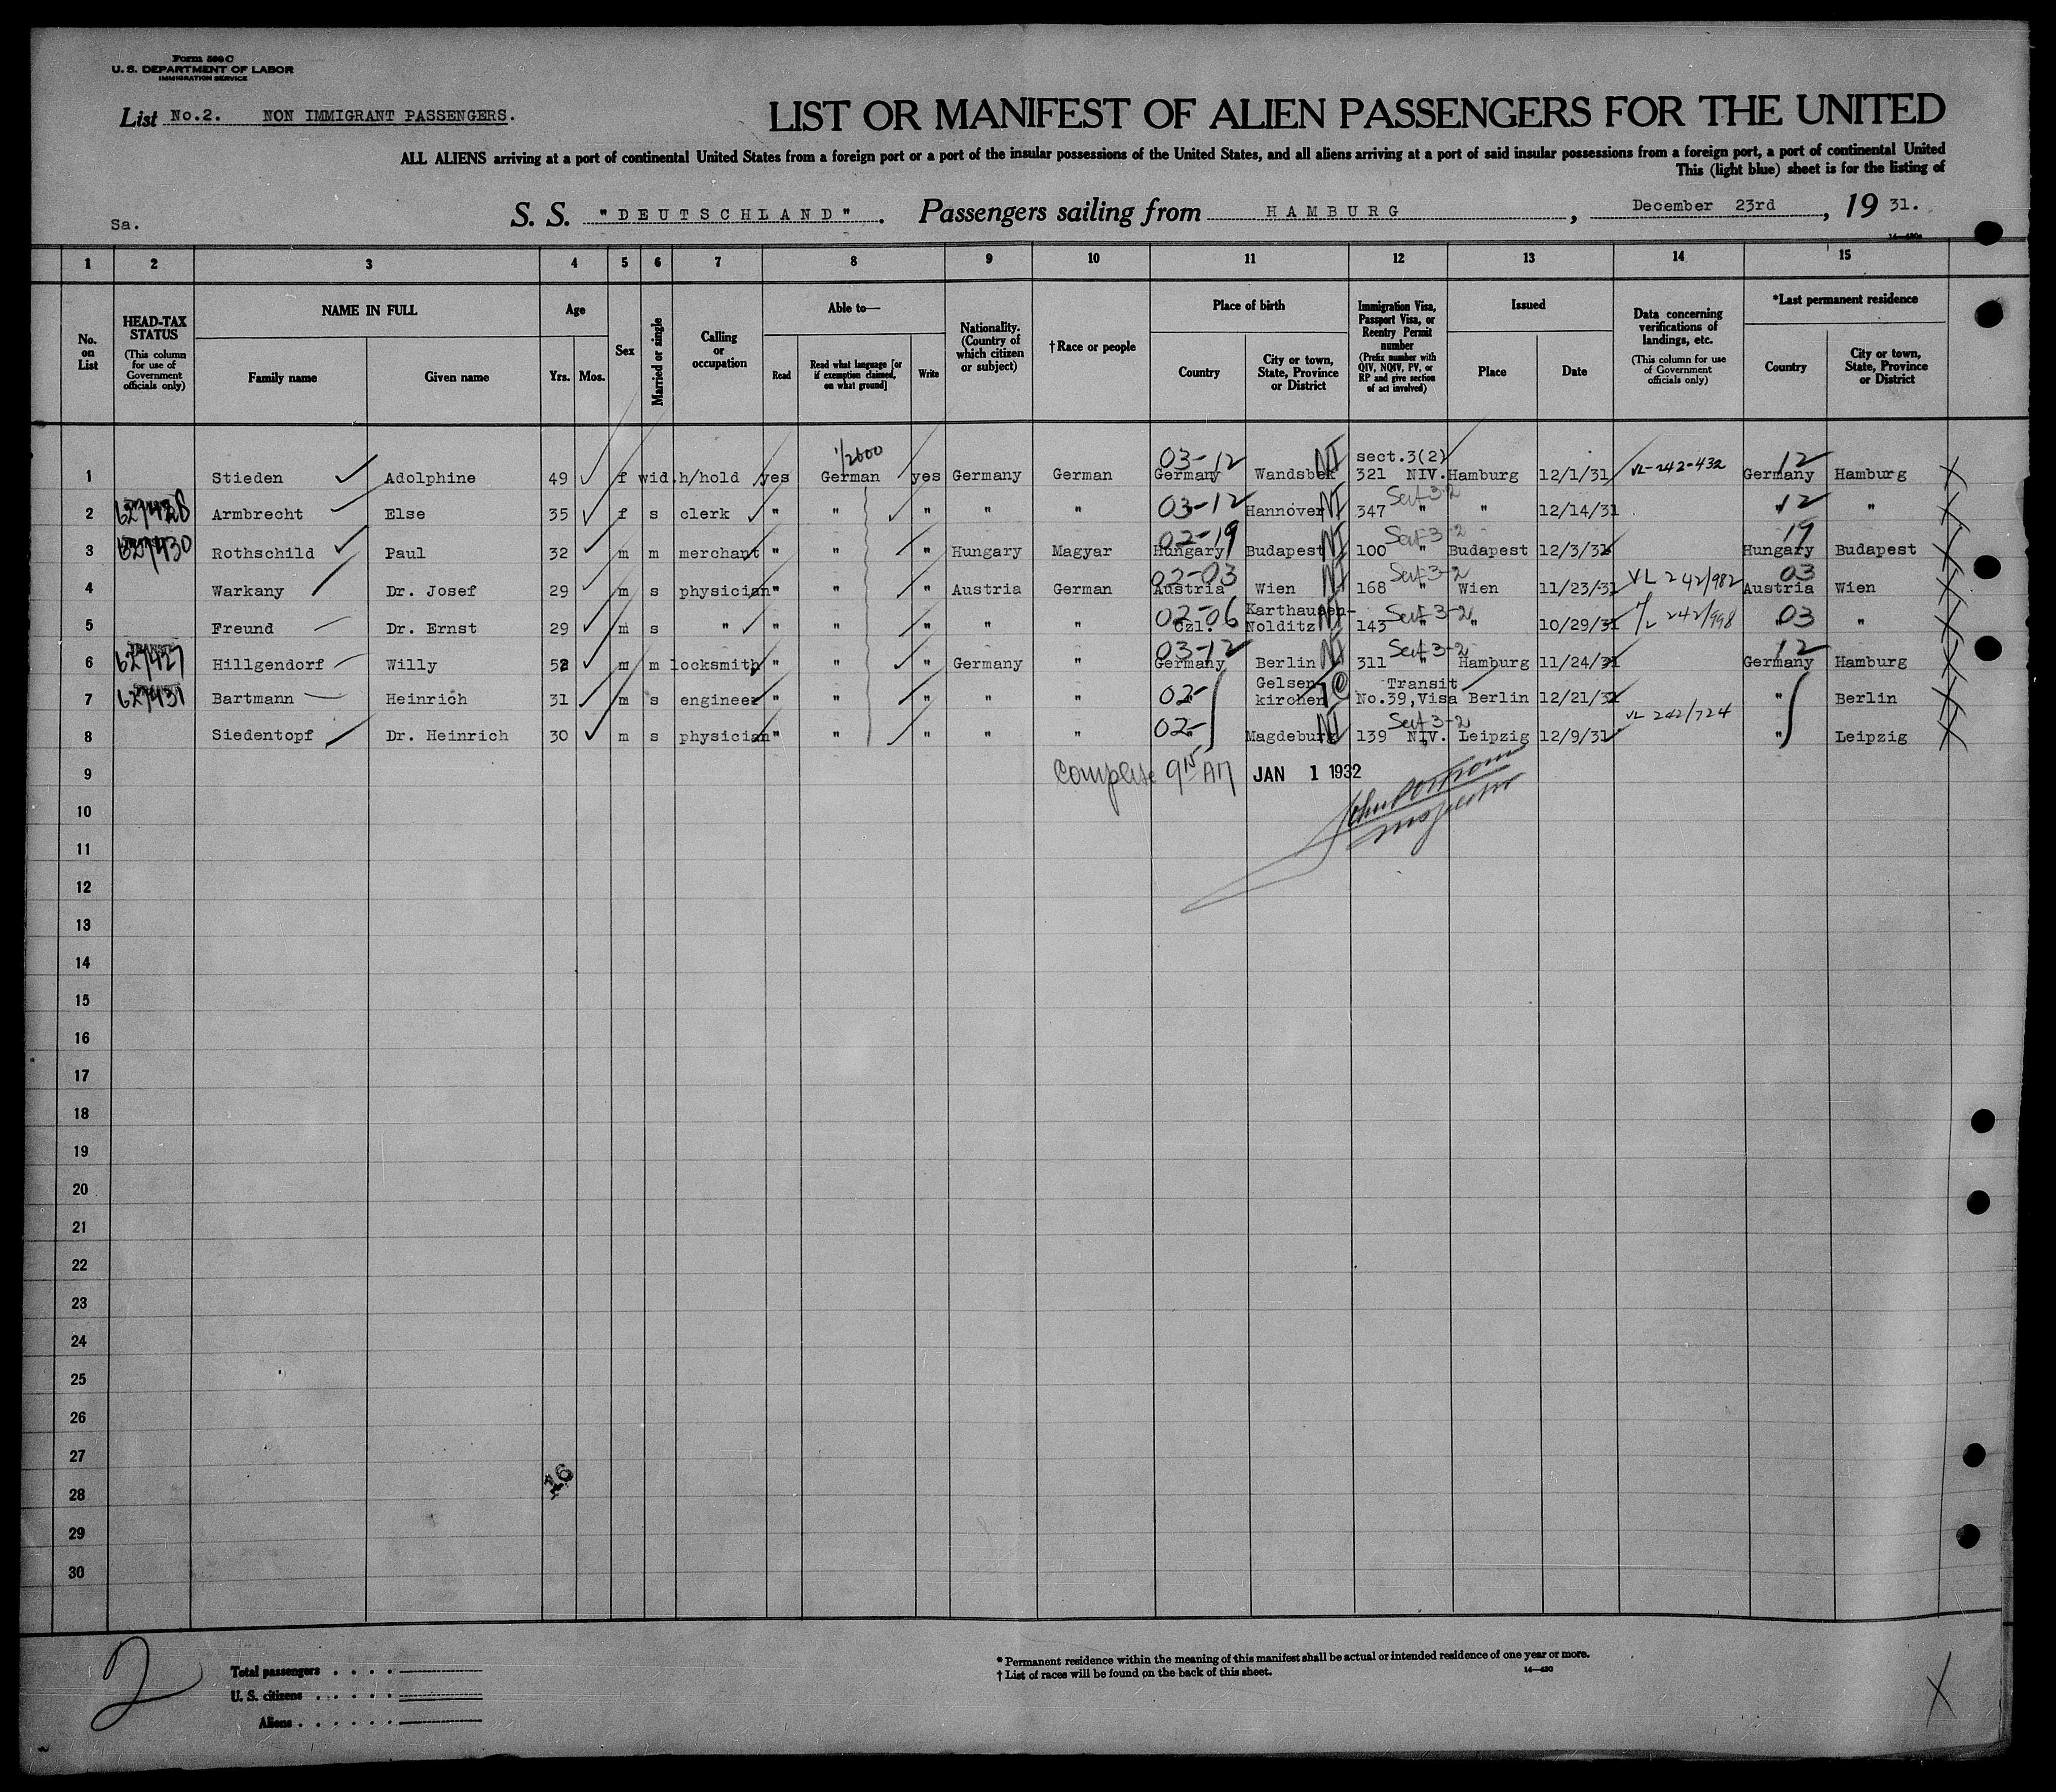 Form 500 C
U. S. DEPARTMENT OF LABOR
IMMIGRATION SERVICE
List No.2. NON IMMIGRANT PASSENGERS.
LIST OR MANIFEST OF ALIEN PASSENGERS FOR THE UNITED
ALL ALIENS arriving at a port of continental United States from a foreign port or a port of the insular possessions of the United States, and all aliens arriving at a port of said insular possessions from a foreign port, a port of continental United
This (light blue) sheet is for the listing of
Sa. S. S. "DEUTSCHLAND". Passengers sailing from HAMBURG, December 23rd, 19 31.
1 2 3 4 5 6 7 8 9 10 11 12 13 14 15
No. on List
HEAD-TAX STATUS (This column for use of Government officials only)
NAME IN FULL
Family name Given name
Age
Yrs. Mos.
Sex
Married or single
Calling or occupation
Able to—
Read Read what language [or if exemption claimed, on what ground] Write
Nationality. (Country of which citizen or subject)
†Race or people
Place of birth
Country City or town, State, Province or District
Immigration Visa, Passport Visa, or Reentry Permit number (Prefix number with QIV, NQIV, PV, or RP and give section of act involved)
Issued
Place Date
Data concerning verifications of landings, etc. (This column for use of Government officials only)
*Last permanent residence
Country City or town, State, Province or District
1/2600 03-12 NI sect.3(2) 12
1 Stieden Adolphine 49 f wid. h/hold yes German yes Germany German Germany Wandsbek 321 NIV. Hamburg 12/1/31 VL-242-432 Germany Hamburg X
2 627428 Armbrecht Else 35 f s clerk " " " " " 03-12 Hannover NI 347 Sect 3-2 " " 12/14/31 12 " X
3 627430 Rothschild Paul 32 m m merchant " " " Hungary Magyar 02-19 Hungary Budapest NI 100 Sect 3-2 " Budapest 12/3/31 19 Hungary Budapest X
4 Warkany Dr. Josef 29 m s physician " " " Austria German 02-03 Austria Wien NI 168 Sect 3-2 " Wien 11/23/31 VL 242/982 03 Austria Wien X
5 Freund Dr. Ernst 29 m s " " " " " " 02-06 Czl. Karthausen-Nolditz NI 143 Sect 3-2 " " 10/29/31 VL 242/998 03 " X
6 TRANSIT 627427 Hillgendorf Willy 52 m m locksmith " " " Germany " 03-12 Germany Berlin NI 311 Sect 3-2 " Hamburg 11/24/31 12 Germany Hamburg X
7 627431 Bartmann Heinrich 31 m s engineer " " " " " 02- Gelsenkirchen Transit No.39,Visa Berlin 12/21/31 " Berlin X
8 Siedentopf Dr. Heinrich 30 m s physician " " " " " 02- Magdeburg NI 139 Sect 3-2 NIV. Leipzig 12/9/31 VL 242/724 " Leipzig X
9 Complete 9 15 AM JAN 1 1932
10
Inspector
11
12
13
14
15
16
17
18
19
20
21
22
23
24
25
26
27
28
29
30
2
Total passengers
U. S. citizens
Aliens
* Permanent residence within the meaning of this manifest shall be actual or intended residence of one year or more.
† List of races will be found on the back of this sheet.
14—430
X